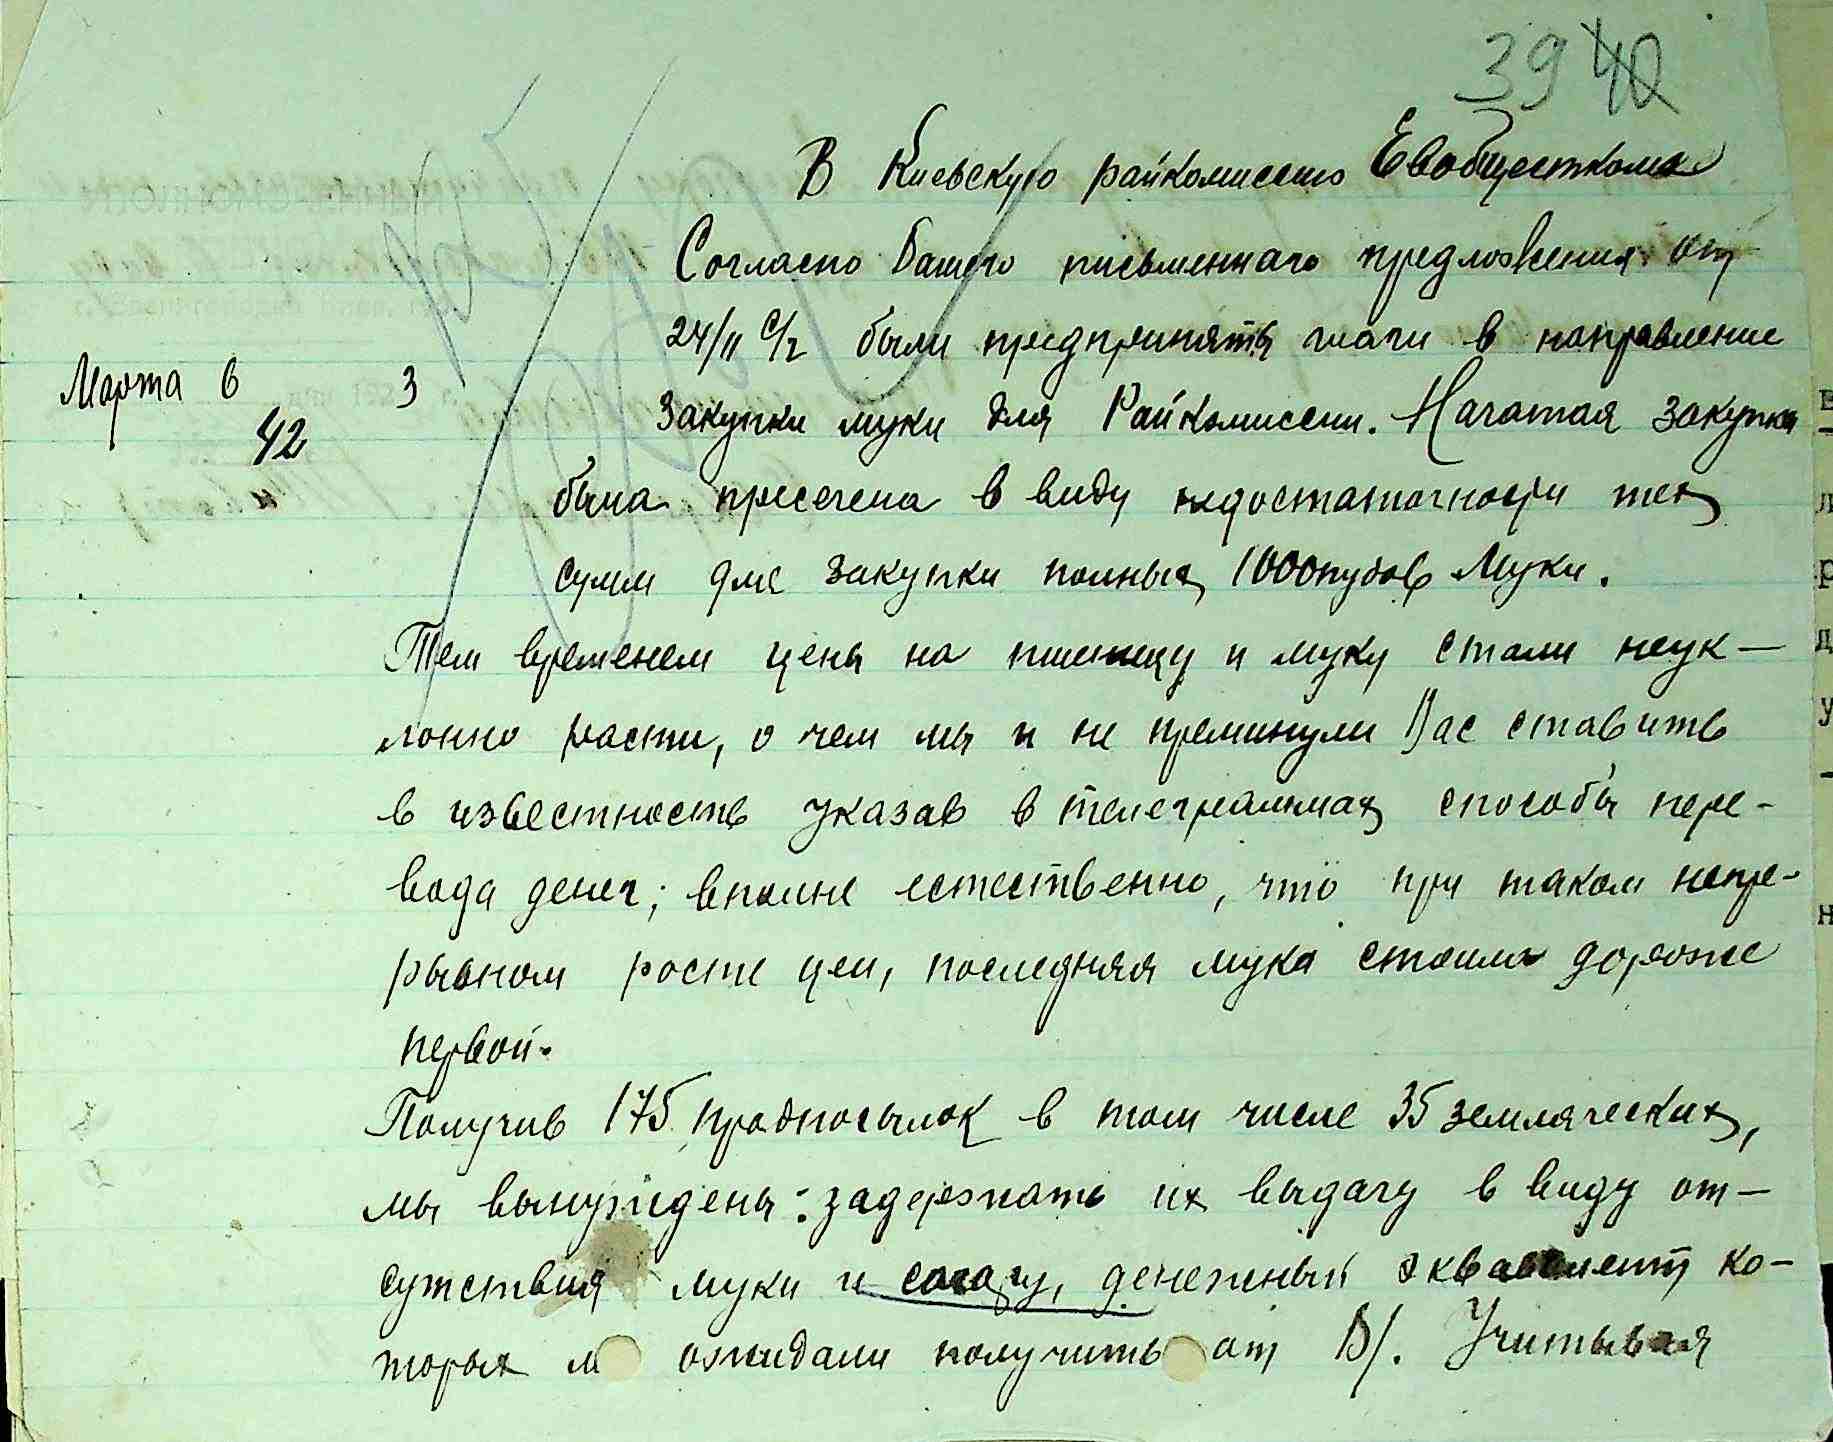 39 40
В Киевскую райкомиссию Евобщесткома
Согласно Вашего письменнаго предложения от
24/II с/г были предприняты шаги в направление
Марта 6 3
закупки муки для Райкомиссии. Начатая закупка
42
была пресечена в виду недостаточности тех
сумм для закупки полных 1000 пудов муки.
Тем временем цены на пшеницу и муку стали неук-
лонно расти, о чем мы и не преминули Вас ставить
в известность указав в телеграммах способы пере-
вода денег; вполне естественно, что при таком непре-
рывном росте цен, последняя мука стоила дороже
первой.
Получив 175 продпосылок в том числе 35 земляческих,
мы вынуждены задержать их выдачу в виду от-
сутствия муки и сахару, денежный эквивалент ко-
торых м ожидали получить от В/. Учитывая